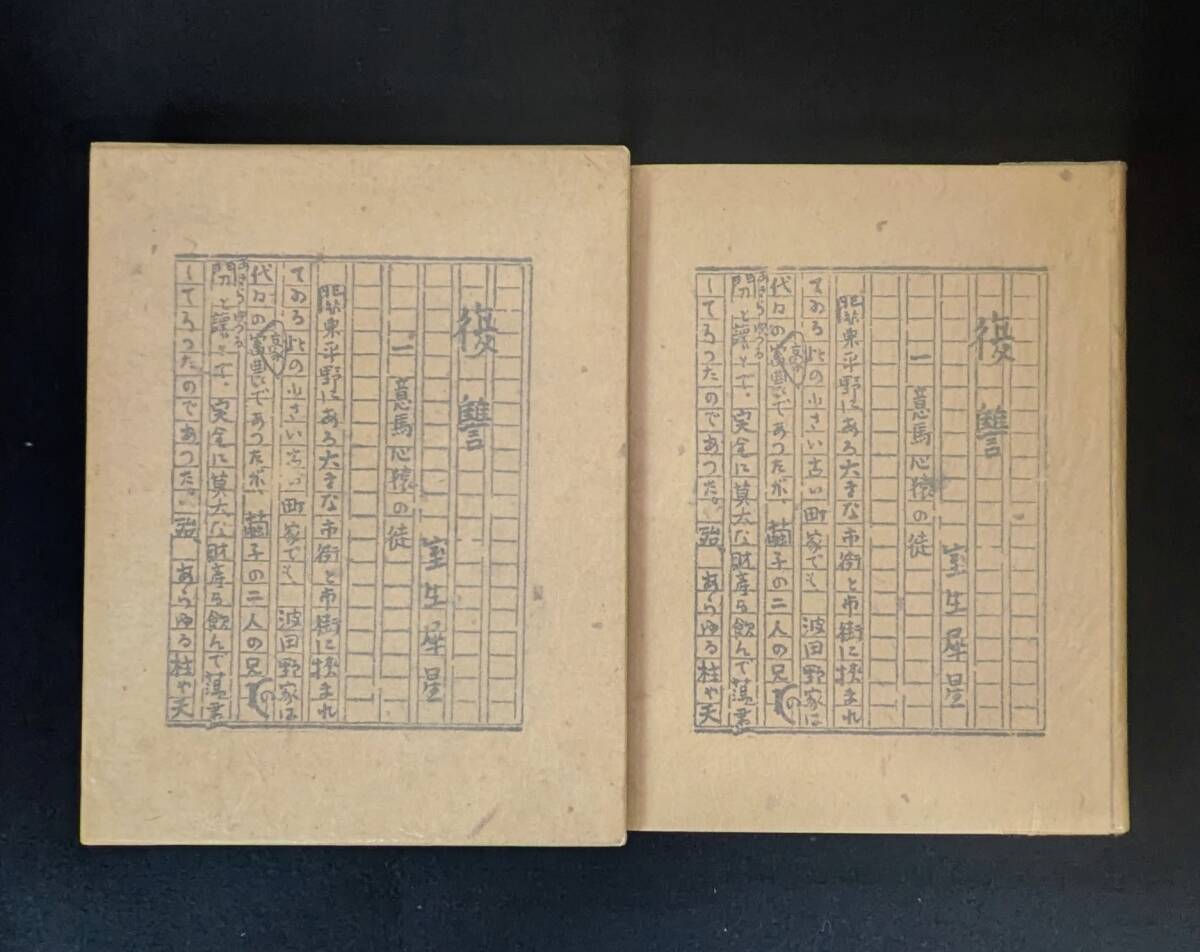 復讐
室生犀星
一 意馬心猿の徒
關東平野にある大きな市街と市街に挾まれ
てゐる此の小さい古い町家でも、波田野家は
代々の富豪であつたが、繭子の二人の兄の
あきら ゆづる
と讓とで、に莫大な財産を飲んで蕩盡
のであつた。殆、あらゆる柱や天
復讐
室生犀星
一 意馬心猿の徒
關東平野にある大きな市街と市街に挾まれ
てゐる此の小さい古い町家でも、波田野家は
代々の富豪であつたが、繭子の二人の兄の
あきら ゆづる
と讓とで、に莫大な財産を飲んで蕩盡
のであつた。殆、あらゆる柱や天